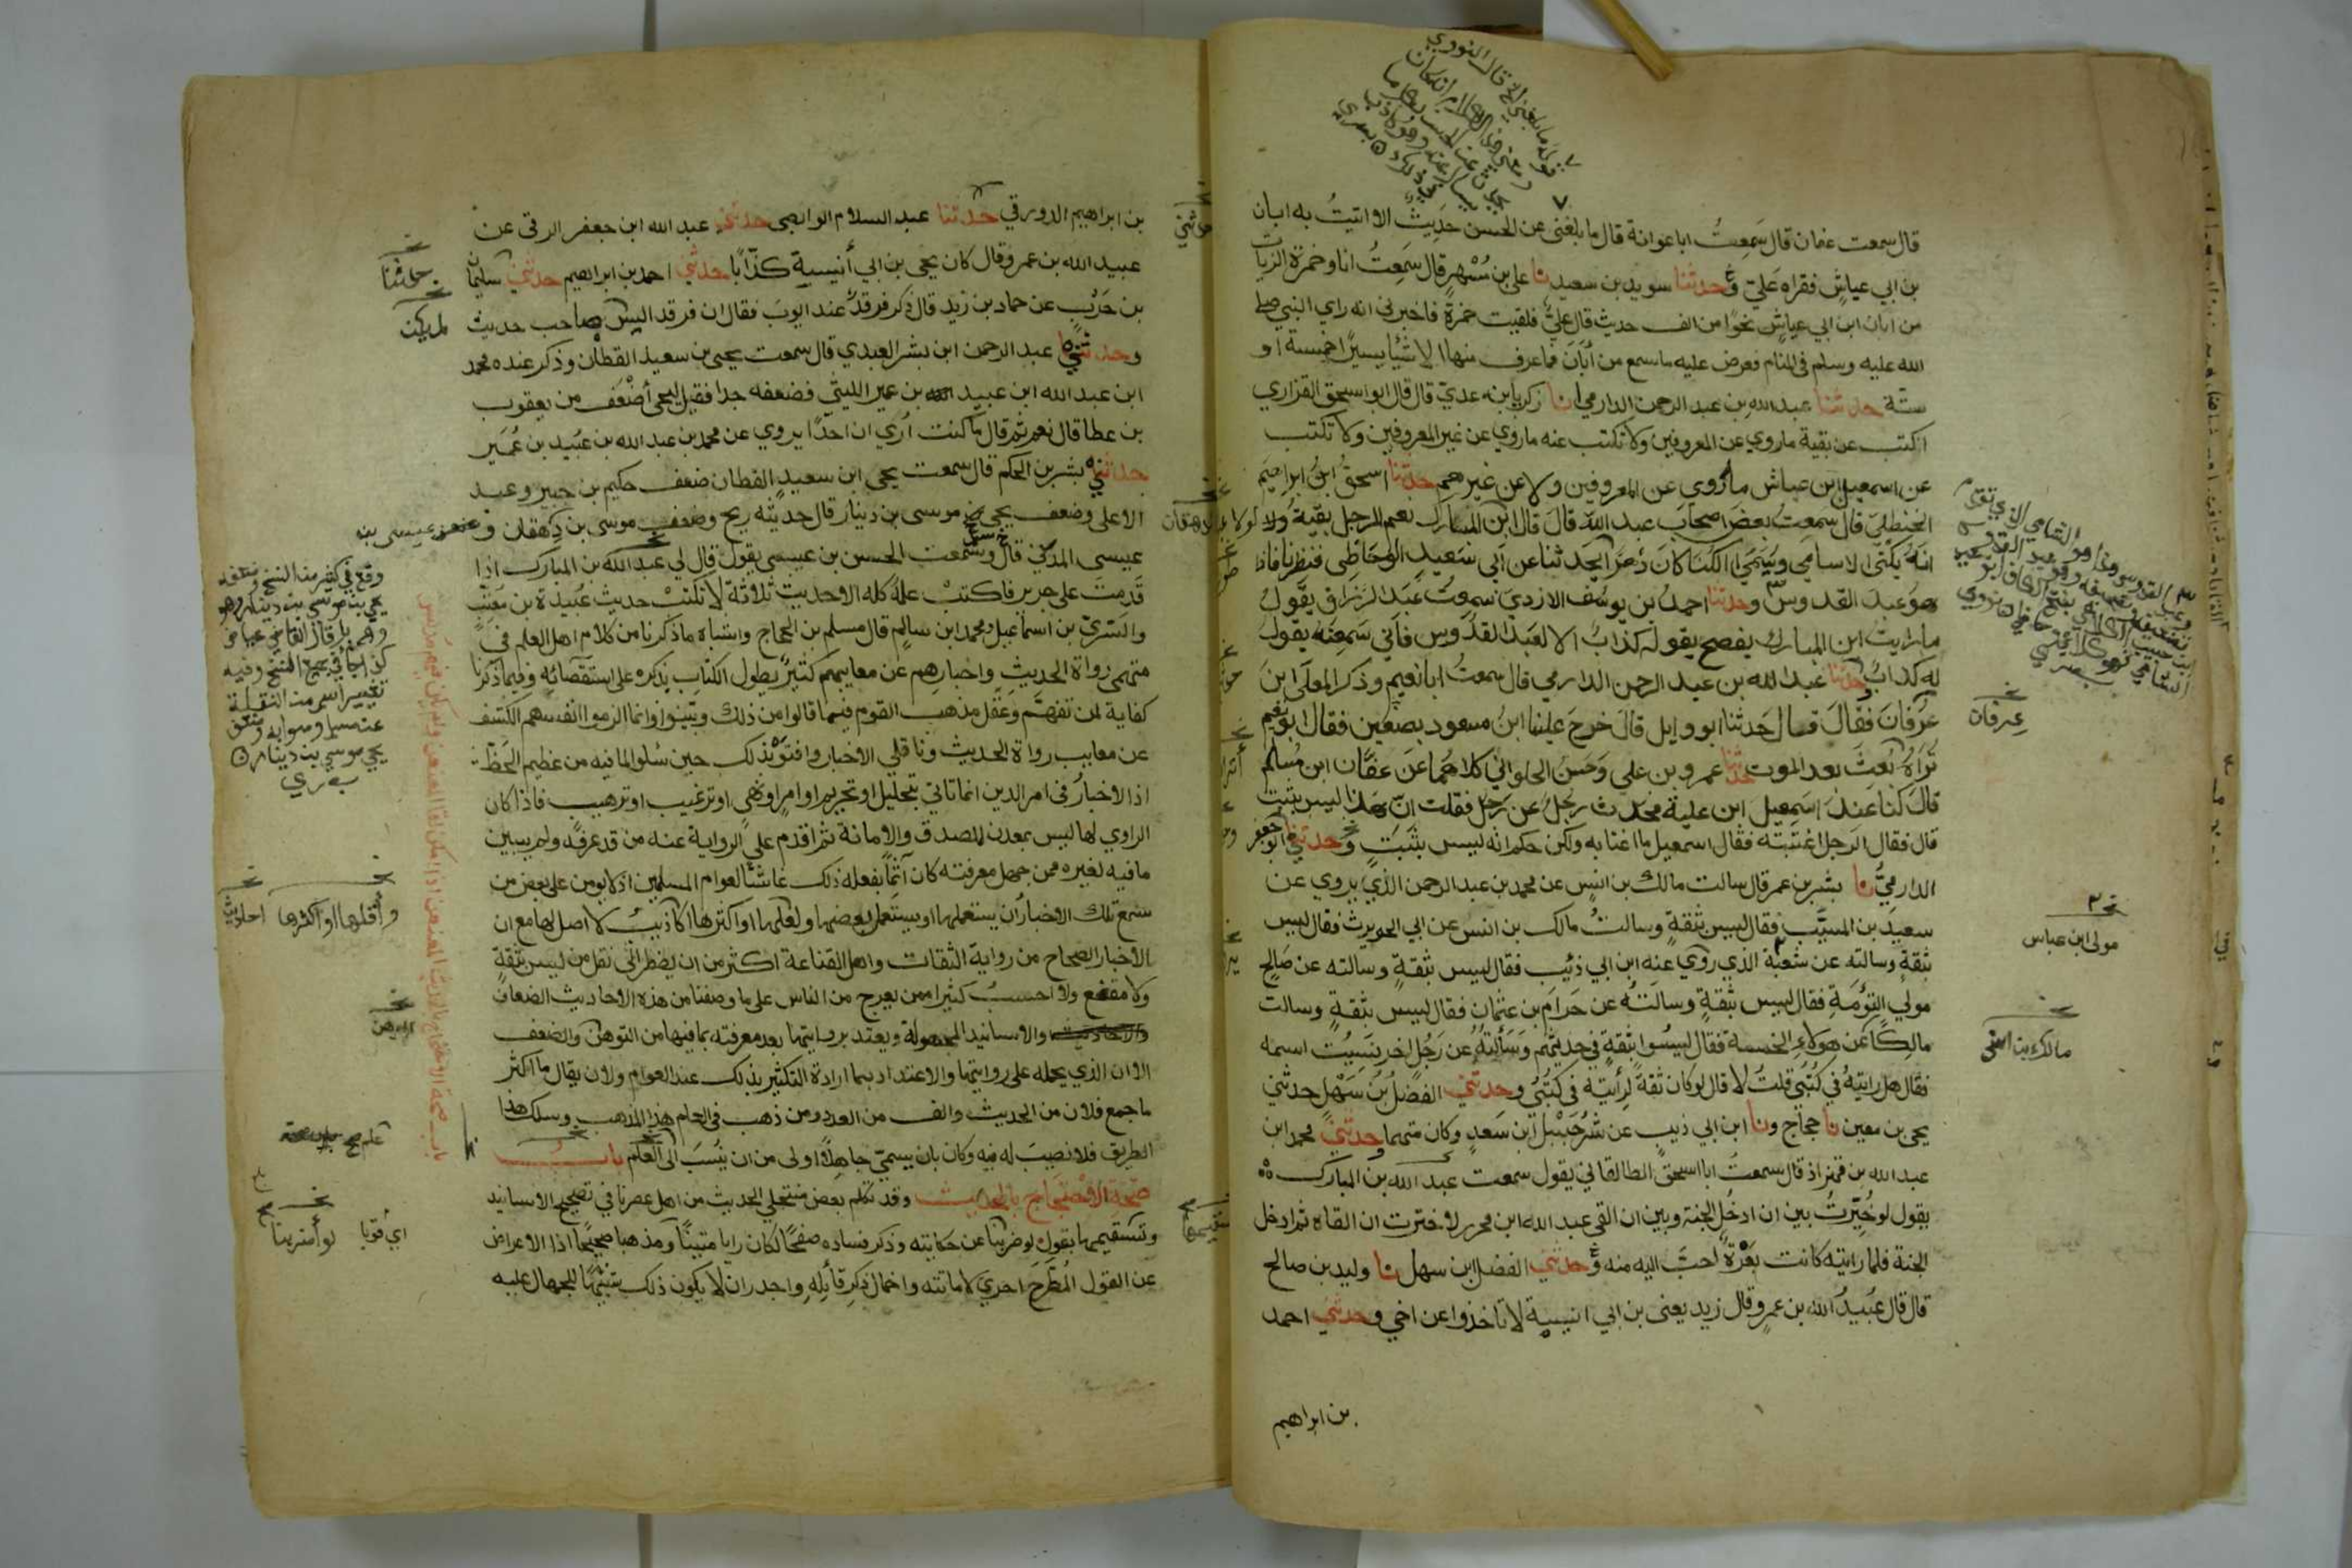 قال سمعت عفان قال سَمِعتُ اباعوانة قال ما بلغنى عن الحسن حَدِيثٌ الا اتيتُ به ابان
بن ابي عياشٍ فقراه عَليّ وحدثنا سويد بن سعيد نا على بن مُسْهِر قال سَمِعتُ انا وحمزة الزيات
من ابان ابن ابي عياشٍ نحوًا من الف حديث قال عليٌّ فلقيت حمزة فاخبرنى انه راي النبي صلى
الله عليه وسلم فى المنام فعرض عليه ما سمع من أبَانَ فما عرف منها الا شيًا يسيرًا خمسة او
ستّة حدثنا عبد اللهِ بن عبد الرحمن الدارمي انا زكريا بن عدي قال قال ابو اسحق الفزاري
اكتب عن بقية ما روي عن المعروفين ولا تكتب عنه ما روي عن غير المعروفين ولا تكتب
عن اسمعيل ابن عياش ما روى عن المعروفين ولا عن غيرهم حدثنا اسحقُ ابنُ ابراهيم
الحنظلىّ قال سمعتُ بعضَ اصحاب عبد الله قالَ قال ابن المبارك نعم الرجل بقيةُ لولا
انه يكنى الاسامي ويسمى الكنا كان دَهرًا يحدثنا عن ابي سَعيدٍ الوحَاظِى فنظرنا فاذا
هو عَبدَ القدوس وحدثنا احمدُ بن يوسُف الازدي سمعتُ عَبدَ الرزاق يقولُ
ما رايت ابن المبارك يفصح يقوله كذابُ الا لعَبد القدّوس فانى سَمِعتُه يقول
له كذابٌ وحدثنا عبد الله بن عبد الرحمن الدارمي قال سمعتُ ابا نعيم وذكر المعلى ابنَ
عرفان فقالَ قال حَدثنا ابو وايل قالَ خرجَ علينا ابنُ مسعود بصفّين فقال ابو نعيم
تُرَاهُ بُعِثَ بعد الموت حدثنا عمرو بن علي وَحَسنُ الحلوانيُّ كلاهُما عَن عفّان ابن مُسْلم
قالَ كناعندَ اسَمِعيل ابن علية فحدث رَجلٌ عَن رَجل فقلت انّ هذا ليس بثبت
قال فقال الرَجل اغتبته فقال اسمعيل ما اغتابه ولكن حكم انه ليس بثبَتٍ وحدثني ابو جعفر
الدارميُّ نا بشر بن عمر قال سالت مالك بن انسٍ عن محمد بن عبد الرحمن الذي يروي عن
سعيد بن المسيَّب فقال ليس بثقةٍ وسالتُ مالك بن انس عن ابي الحويرث فقال ليس
بثقةٍ وسالته عن شعبة الذي روي عنه ابن ابي ذئب فقال ليس بثقةٍ وسالته عن صالح
مولي التوأمة فقال ليس بثقةٍ وسالتُه عن حرام بن عثمان فقال ليس بثقةٍ وسالت
مالكًا عن هولاءِ الخمسة فقال ليسُوا بثقةٍ في حديثهم وَسَألتهُ عن رَجُل اخر نَسِيتُ اسمه
فقال هل رايتهُ في كُتُبي قلتُ لا قال لو كان ثقةً لرأيته فى كتُبي وحدثني الفضلُ بنُ سَهْل حدثني
يحى بن معين نا حجاج ونا ابن ابي ذيب عن شُرَحبيل ابن سَعدٍ وكان متهما وحدثني محمد ابن
عبد الله بن قهزاذ قال سمعتُ ابا اسحق الطالقاني يقول سمعت عبد الله بن المبارك
يقول لو خُيّرتُ بين ان ادخل الجنة وبين ان القى عبد الله ابن محرر لاخترت ان القاه ثم ادخل
الجنة فلما رايته كانت بَعْرَةٌ احبّ اليه منه وحدثني الفضل ابن سهل نا وليد بن صالح
قال قال عُبَيدُ الله بن عمرو قال زيد يعنى بن ابي انيسة لا تاخذوا عن اخي وحدثني احمد
بن ابراهيم
عرفان
مولى ابن عباس
مالك بن انس
بن ابراهيم الدورقي حدثنا عبد السلام الوابصى حدثني عبد الله ابن جعفر الرقى عن
عبيد الله بن عمرو قال كان يحى بن ابي أنيسة كذّابًا حدثني احمد بن ابراهيم حدثني سليمان
بن حَرْبٍ عن حماد بن زيد قال ذكر فرقدٌ عند ايوبَ فقال ان فرقد اليس صاحب حديث
وحدثني عبد الرحمن ابن بشر العبدي قال سمعت يحيى بن سعيد القطان وذكر عنده محمد
ابن عبد الله ابن عبيد بن عمير الليثي فضعفه جدا فقيل ليحى أضْعَف من يعقوب
بن عطا قال نعم ثم قال ما كنت أرَي ان احدًا يروي عن محمد بن عبد الله بن عُبَيد بن عُمَير
حدثني بشر بن الحكم قال سمعت يحى ابن سعيدٍ القطان ضعف حكيم بن جبير وعبد
الاعلى وضعف يحي موسى بن دينار قال حديثه ريح وضعف موسى بن دِهقان وعن عيسى بن
عيسى المدني قال وسمعت الحسن بن عيسى يقول قال لي عبد الله بن المبارك اذا
قَدِمتَ على جرير فاكتبْ علمَهُ كله الا حديثَ ثلاثة لا تكتبْ حديث عُبَيدة بن مُعَتِّب
والسَّريّ بن اسماعيل ومحمد ابن سالمٍ قال مسلم بن الحجاج واشباه ما ذكرنا من كلام اهل العلم فى
متهمى رواة الحديثِ واخبارهم عن معايبهم كثيرٌ يطول الكتاب بذكره على استقصائه وفيما ذكرنا
كفاية لمن تفهّم وَعَقَلَ مذهب القوم فيما قالوا من ذلك وبيّنوا وانما الزموا انفسهم الكشف
عن معايب رواة الحديث وناقلي الاخبار وافتوْا بذلك حين سُئلوا لما فيه من عظيم الحظ
اذا الاخبارُ فى امر الدين انما تاتى بتحليل او تحريم او امرٍ او نهيٍ او ترغيب او ترهيب فاذا كان
الراوي لها ليس بمعدن للصدق والامانة ثم اقدم على الرواية عنه من قد عرفه ولم يبين
ما فيه لغيره ممن جهل معرفته كان آثمًا بفعله ذلك غاشًّا لعوام المسلمين اذ لا يومن على بعض من
سمع تلك الاخبار أن يستعملها او يستعمل بعضها ولعلها او اكثرها اكاذيبُ لا اصل لها مع ان
الاخبار الصحاح من رواية الثقات واهل القناعة اكثر من ان يضطر الى نقل من ليس بثقةٍ
ولا مقنع ولا احسبُ كثيرا ممن يعرج من الناس على ما وصفنا من هذه الاحاديث الضعاف
والاسانيد المجهولة ويعتد بروايتها بعد معرفته بما فيها من التوهن والضعف
الا ان الذي يحمله على روايتها والاعتداد بها ارادة التكثير بذلك عند العوام ولان يقال ما اكثر
ما جمع فلان من الحديث والف من العدد ومن ذهب فى العلم هذا المذهب وسلك هذا
الطريق فلا نصيبَ له فيه وكان بان يسمىّ جاهلاً اولى من ان يُنسَبَ الى العلم باب
صحة الاحتجاج بالحديث وقد تكلم بعض منتحلي الحديث من اهل عصرنا في تصحيح الاسانيد
وتسقيمها بقول لو ضربنا عن حكايته وذكر فساده صفحًا لكان رايا متينًا ومذهبا صحيحًا اذ الاعراض
عن القول المُطَّرَح احري لاماتته واخمال ذكر قائِلِهِ واجدر ان لا يكون ذلك تنبيهًا للجهال عليه
حدثنا
لم يكن
وقع في كثير من النسخ وضعف
يحي بن موسي بن دينار وهو
وهم
واقلها او اكثرها احاديث